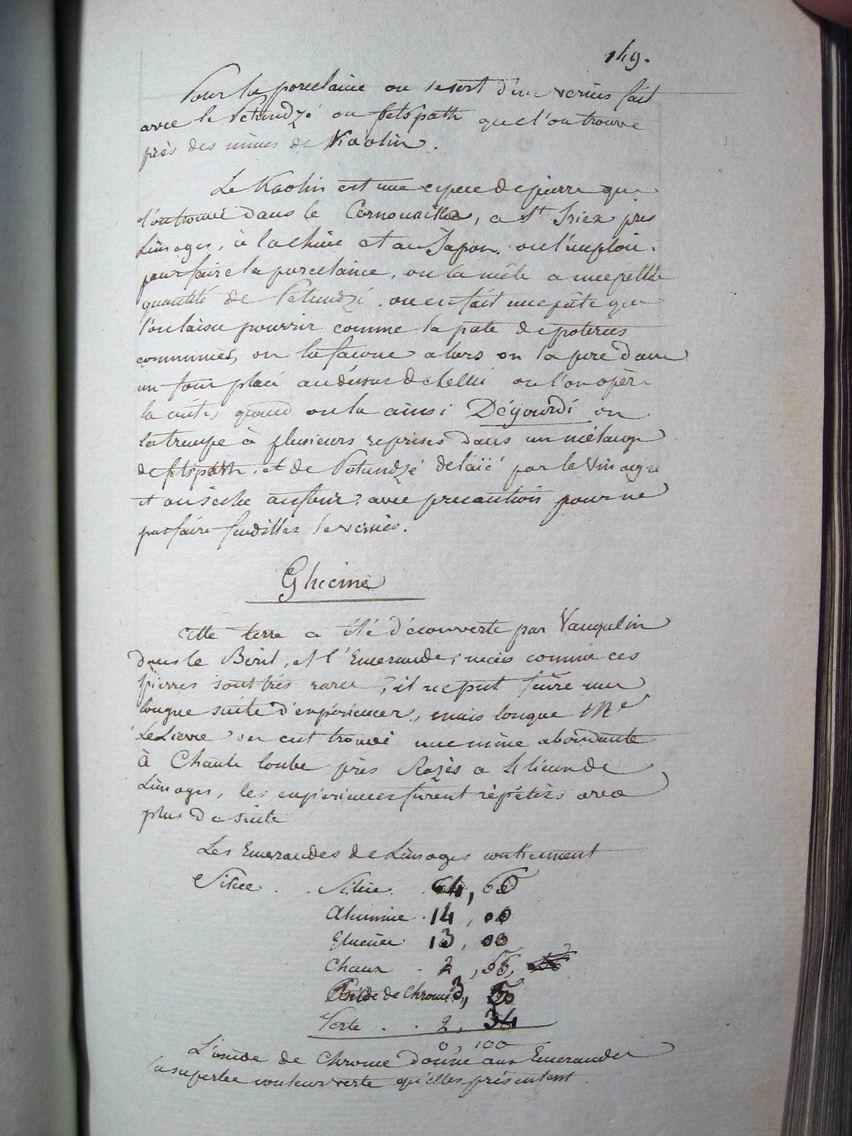 149.
Pour la porcelaine on se sert d'un vernis fait
avec le Petundzé ou feltspath que l'on trouve
près des mines de Kaolin.
Le Kaolin est une espece de pierre que
l'on trouve dans le Cornouailles, a St Iriex près
Limoges, à la chine et au Japon. on l'emploie
pour faire la porcelaine, on la mêle a une petite
quantité de Petundzé. on en fait une pate que
l'on laisse pourrir comme la pate de poteries
communes, on la faconne alors on la dans
un four placé au dessus de celui ou l'on opère
la cuite, quand on l'a ainsi Dégourdi on
la trempe à plusieurs reprises dans un mélange
de feltspath et de Petundzé délaïé par le vinaigre
et on séche au four avec precaution pour ne
pas faire fendiller le vernis.
Glucine
Cette terre a été découverte par Vauquelin
dans le Béril, et l'Emeraude, mais comme ces
pierres sont très rares, il ne put faire une
longue suite d'expériences, mais lorsque Mr
LeLievre en eut trouvé une mine abondante
à Chante loube près Razès a 4 lieues de
Limoges, les expériences furent répétées avec
plus de suite
Les Emeraudes de Limoges contiennent
Silice . . Silice. 64, 60
Alumine . 14, 00
Glucine 13, 00
Chaux . 2, 56,
Oxide de Chrome 3, 50
Perte . . 2, 34
0, 100
L'oxide de Chrome donne aux Emeraudes
la superbe couleur verte qu'elles présentent.